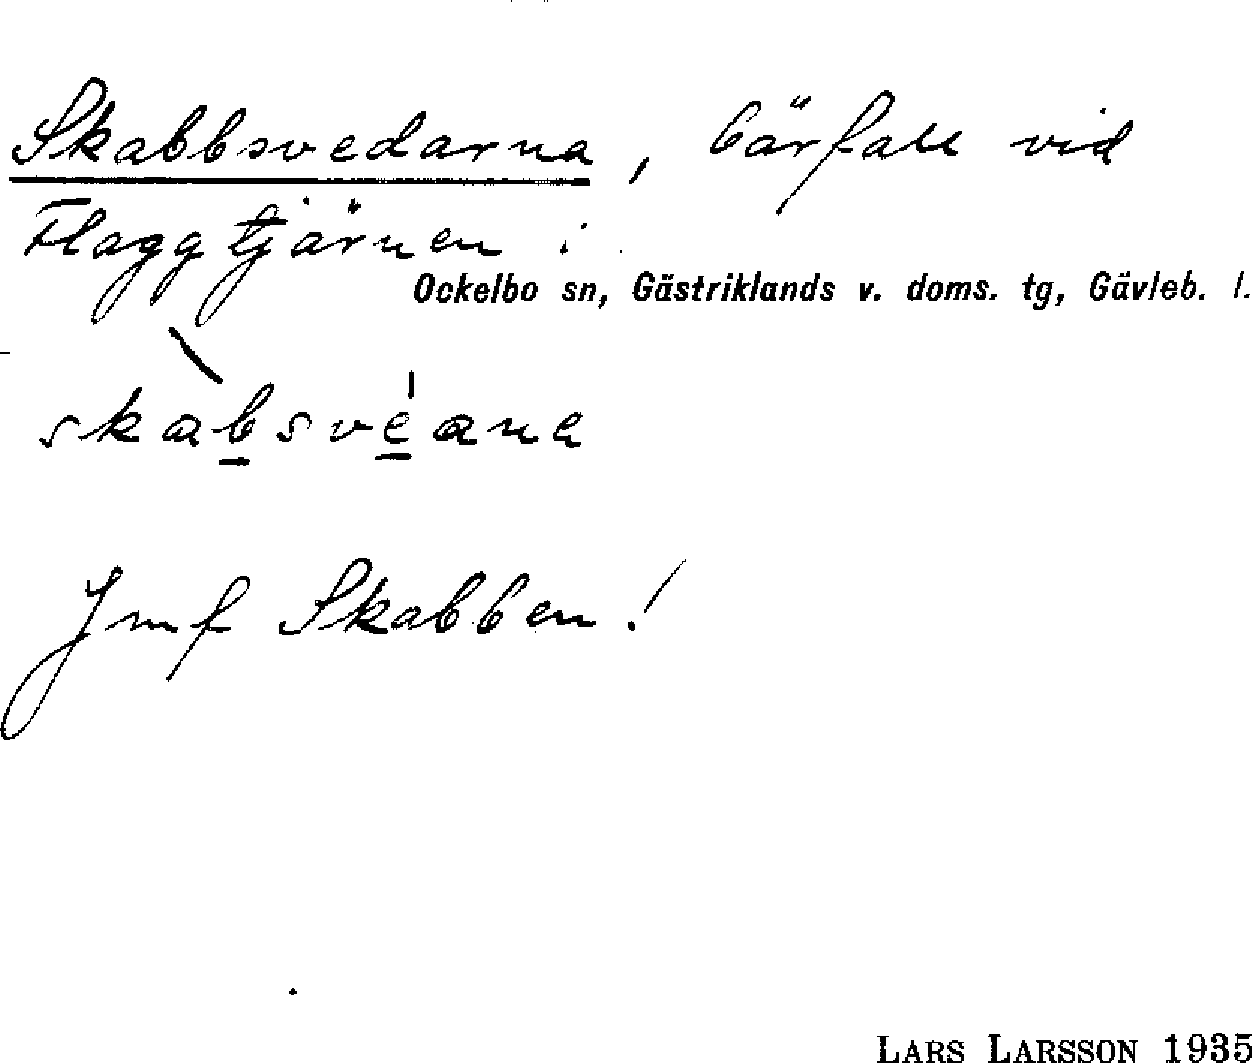 Skabbsvedarna, bärfall vid
Flaggtjärnen i
Ockelbo sn, Gästriklands v. doms. tg, Gävleb. l.
skabsvéana
Jmf Skabben!
LARS LARSSON 1935